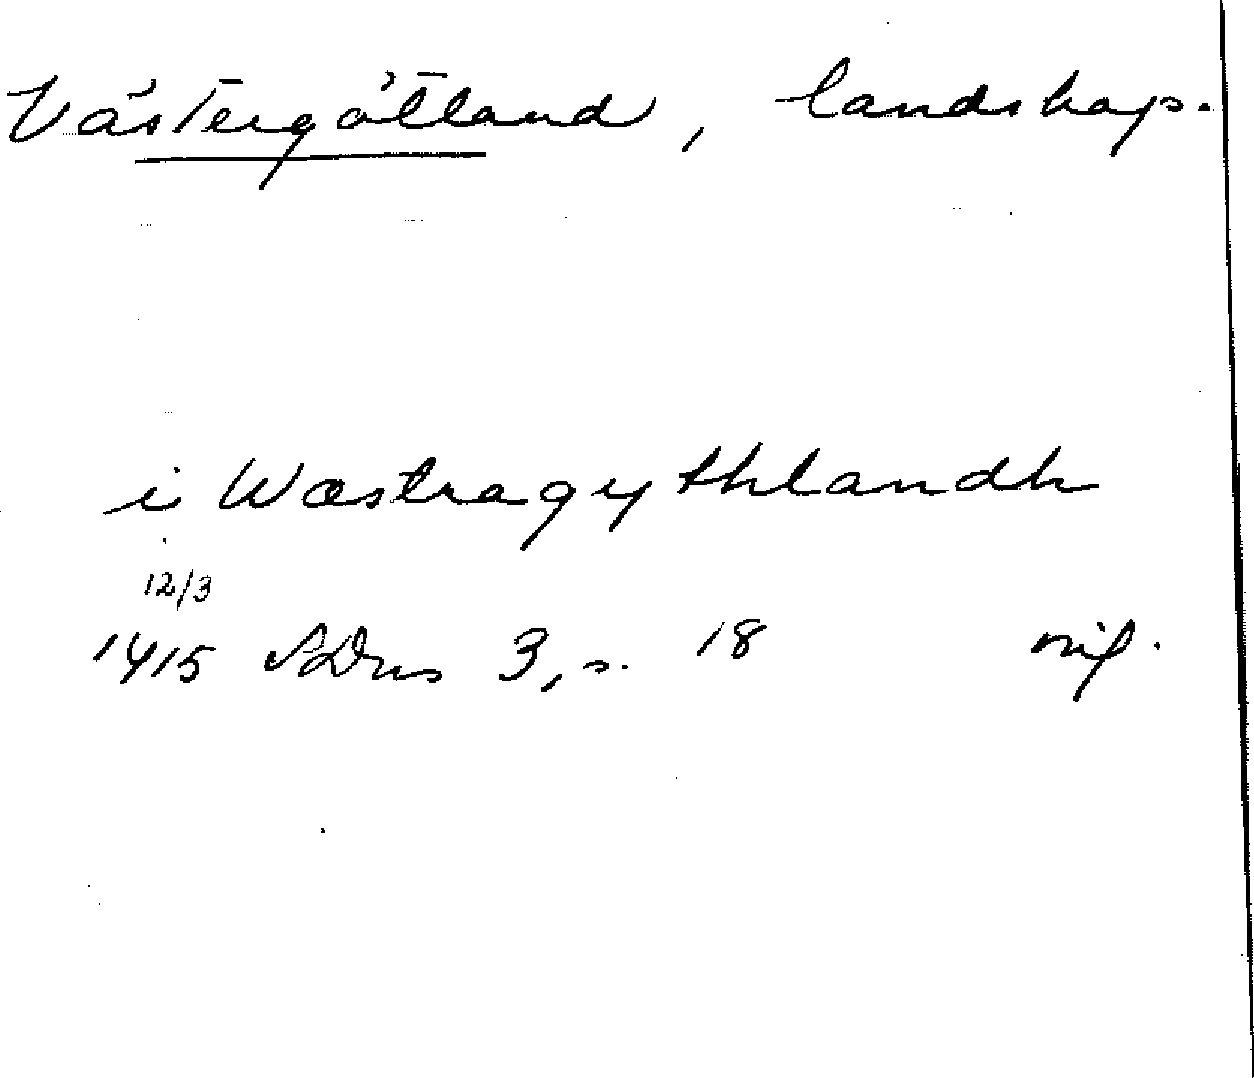 Västergötland, landskap.
i Wæstragythlandh
12/3
1415 SDns 3, s. 18